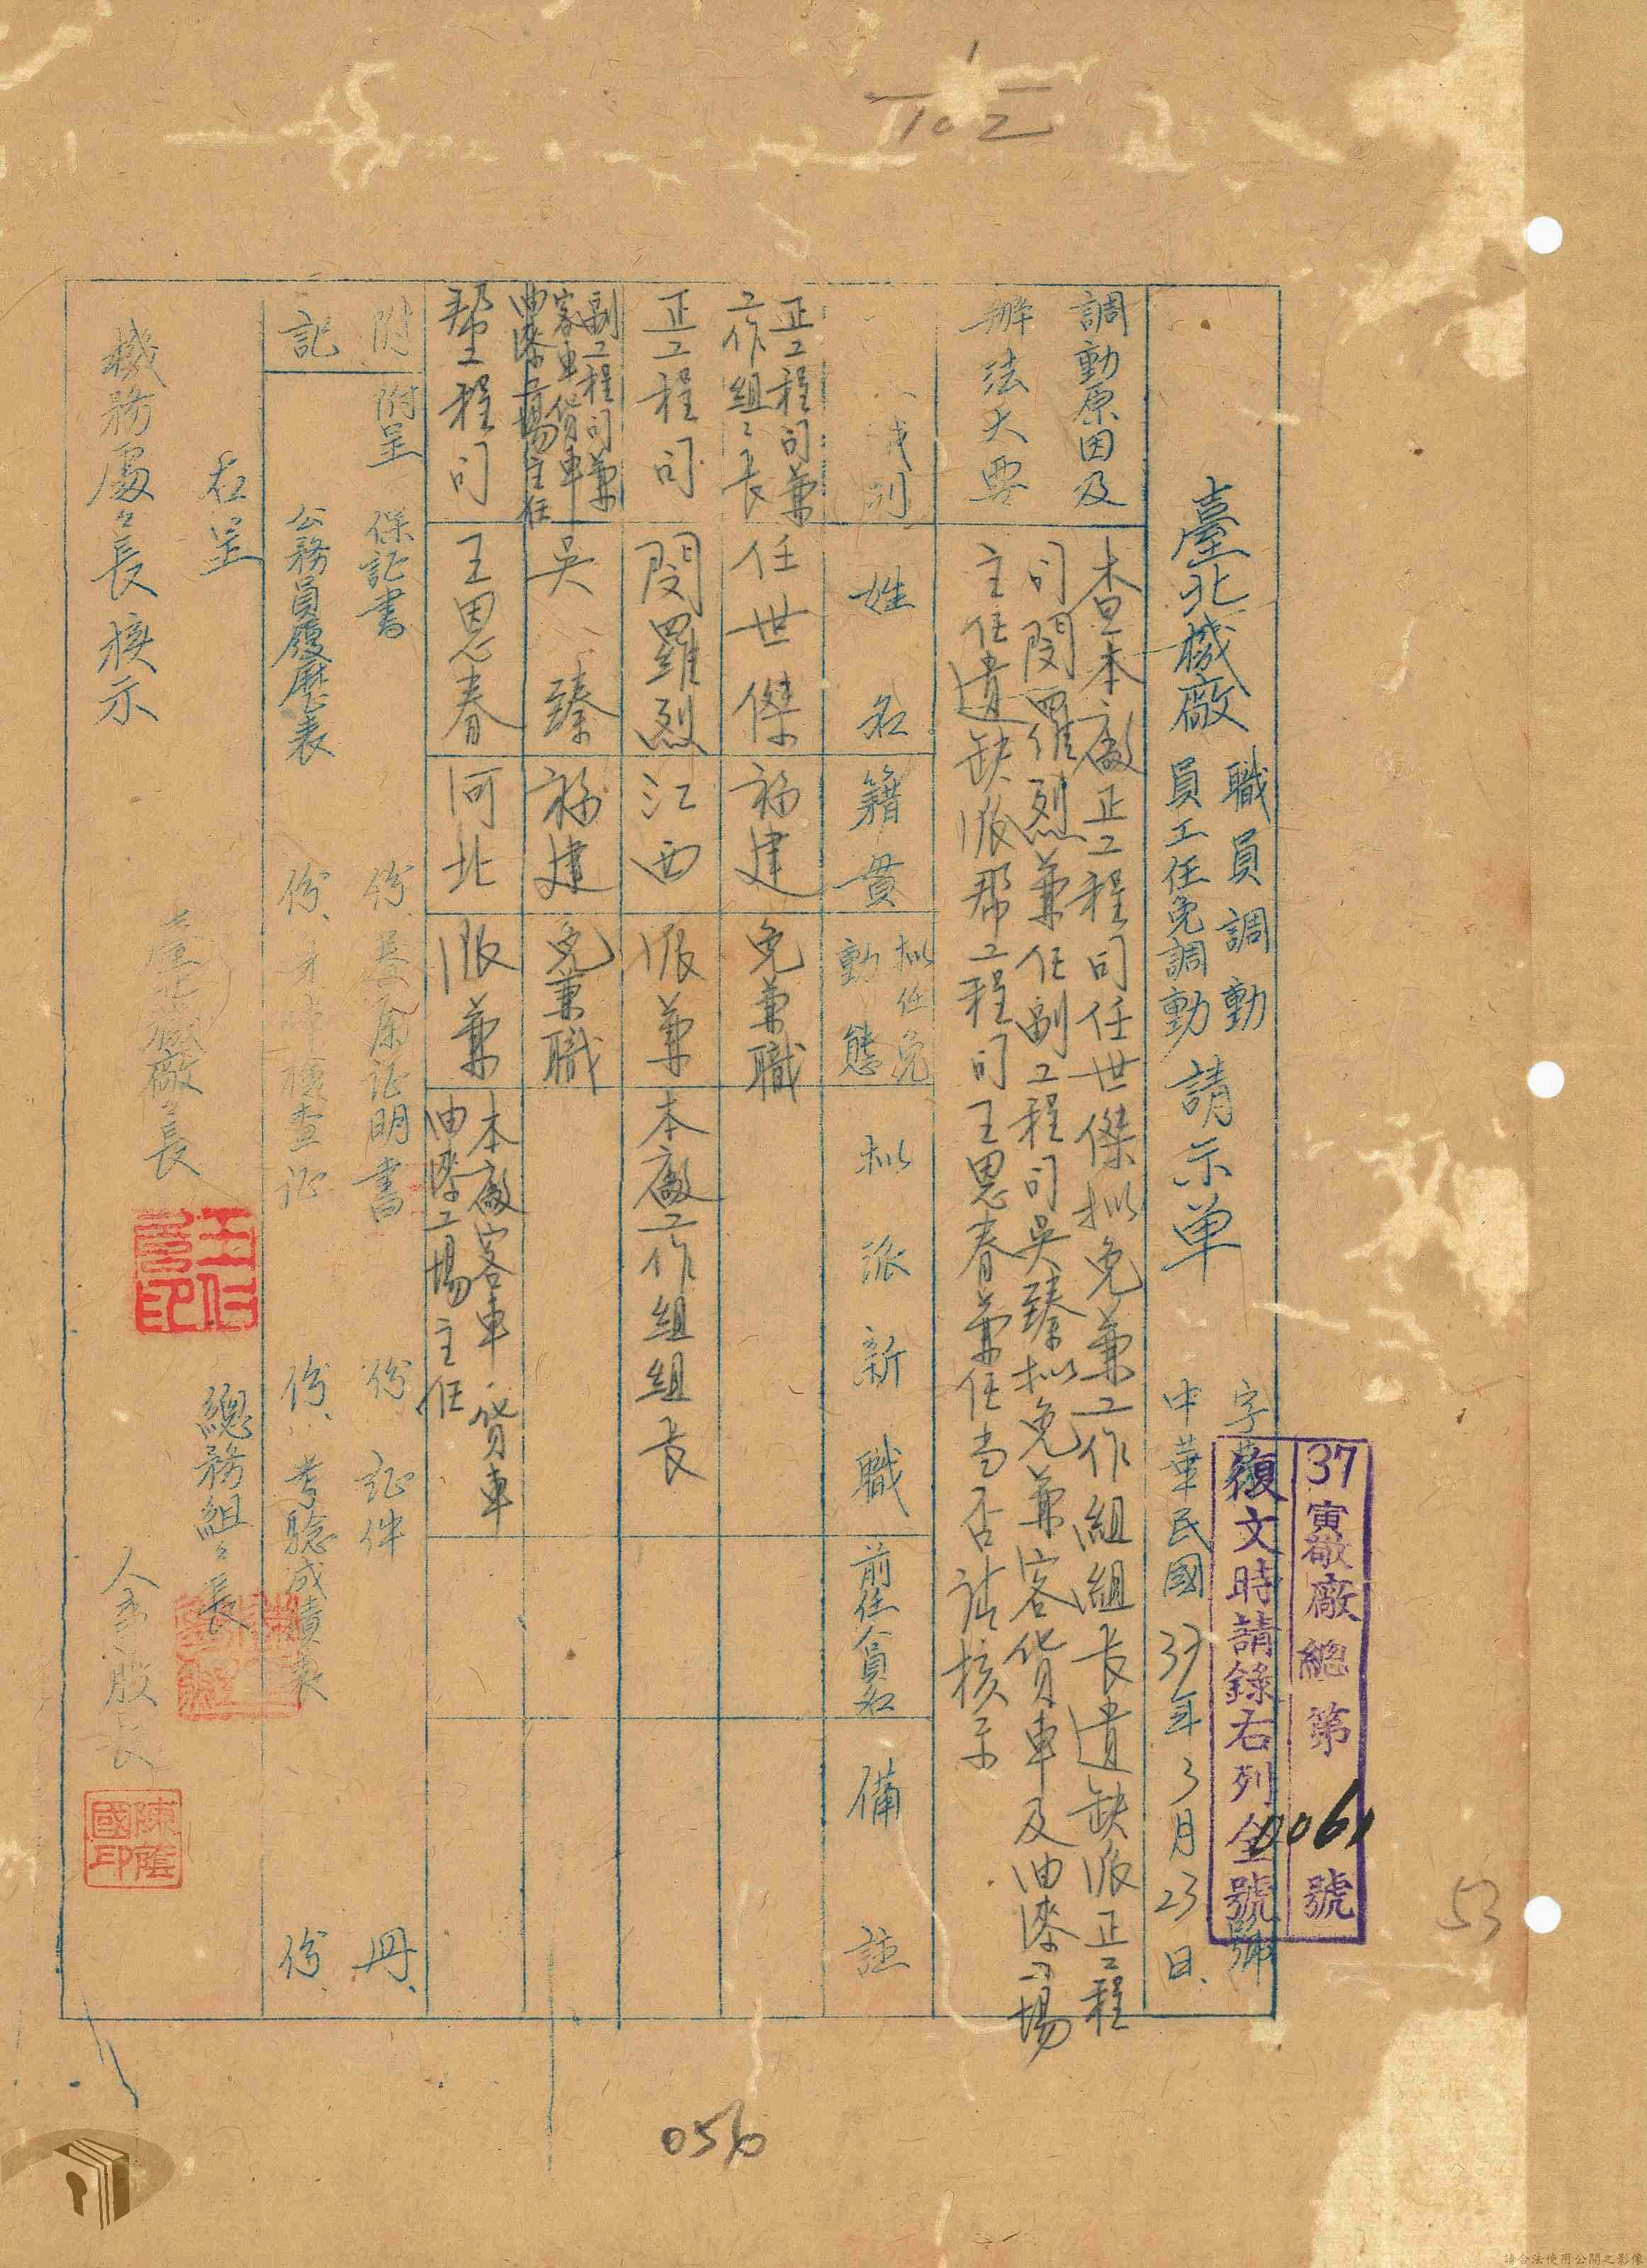 102
37寅敬廠總第0061號
復文時請錄右列全號
字第 號
臺北機廠職員調動員工任免調動請示单
中華民國37年3月23日
調動原因及辦法大要
查本廠正工程司任世傑拟免兼工作組組长遺缺派正工程
司閔羅烈兼任副工程司吳臻拟免兼客货車及油漆工場
主任遺缺派帮工程司王恩春兼任当否請核示
職別
姓名
籍貫
拟任免動態
拟派新職
前任人員名
備註
正工程司兼工作組々长
任世傑
福建
免兼職
正工程司
閔羅烈
江西
派兼
本廠工作組組长
副工程司兼客車货車油漆工場主任
吳臻
福建
免兼職
帮工程司
王恩春
河北
派兼
本廠客車貨車油漆工場主任
附記
附呈 保証書 份、 証明書 份 証件 冊、
公務員履歷表 份、 檢查証 份、考驗成績表 份、
右呈
機務處々長核示
臺北機廠々長
王仁
印
總務組々長
人事股长
陳蔭國印
053
056
請合法使用公開之影像